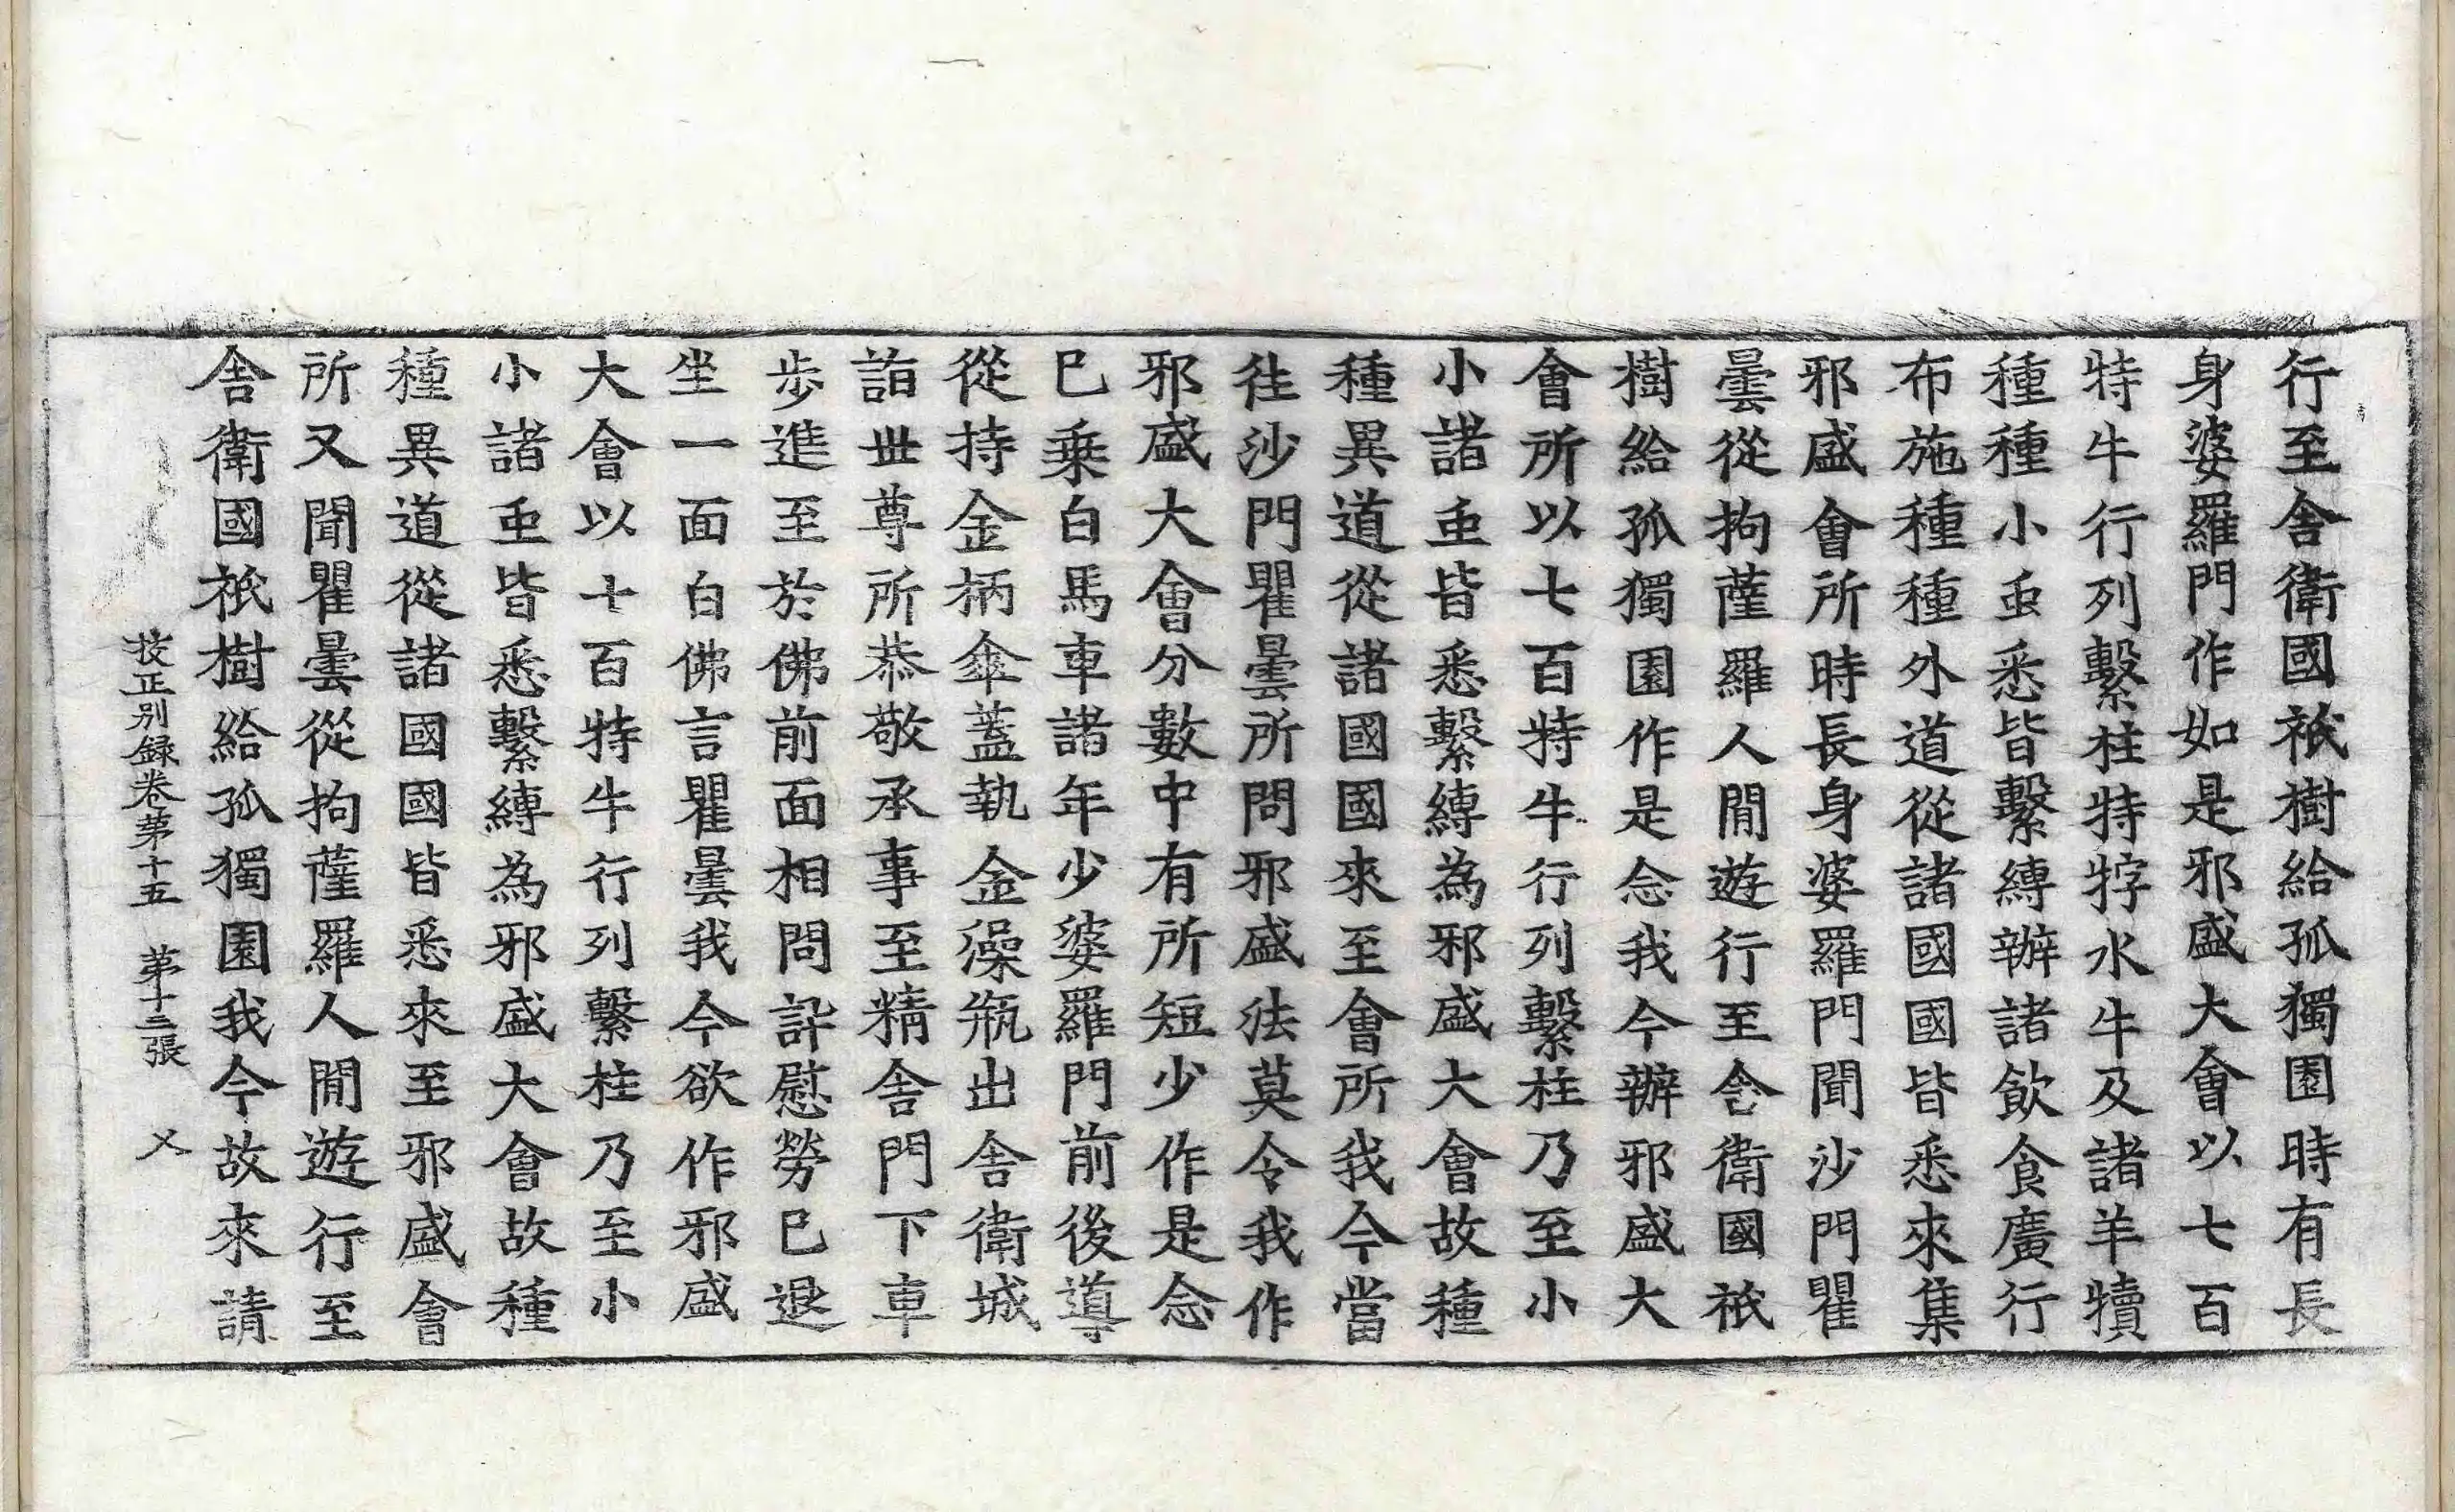 行至舍衛國祇樹給孤獨園時有長
身婆羅門作如是邪盛大會以七百
特牛行列繫柱特牸水牛及諸羊犢
種種小䖝悉皆繫縛辦諸飲食廣行
布施種種外道從諸國國皆悉來集
邪盛會所時長身婆羅門聞沙門瞿
曇從拘薩羅人閒遊行至舍衛國祇
樹給孤獨園作是念我今辦邪盛大
會所以七百特牛行列繫柱乃至小
小諸䖝皆悉繫縛為邪盛大會故種
種異道從諸國國來至會所我今當
往沙門瞿曇所問邪盛法莫令我作
邪盛大會分數中有所短少作是念
已乗白馬車諸年少婆羅門前後導
從持金柄傘蓋執金澡瓶出舍衛城
詣世尊所恭敬承事至精舍門下車
步進至於佛前面相問訊慰勞已退
坐一面白佛言瞿曇我今欲作邪盛
大會以七百特牛行列繫柱乃至小
小諸䖝皆悉繫縛為邪盛大會故種
種異道從諸國國皆悉來至邪盛會
所又聞瞿曇從拘薩羅人閒遊行至
舍衛國祇樹給孤獨園我今故來請
挍正別録卷第十五 第十三張